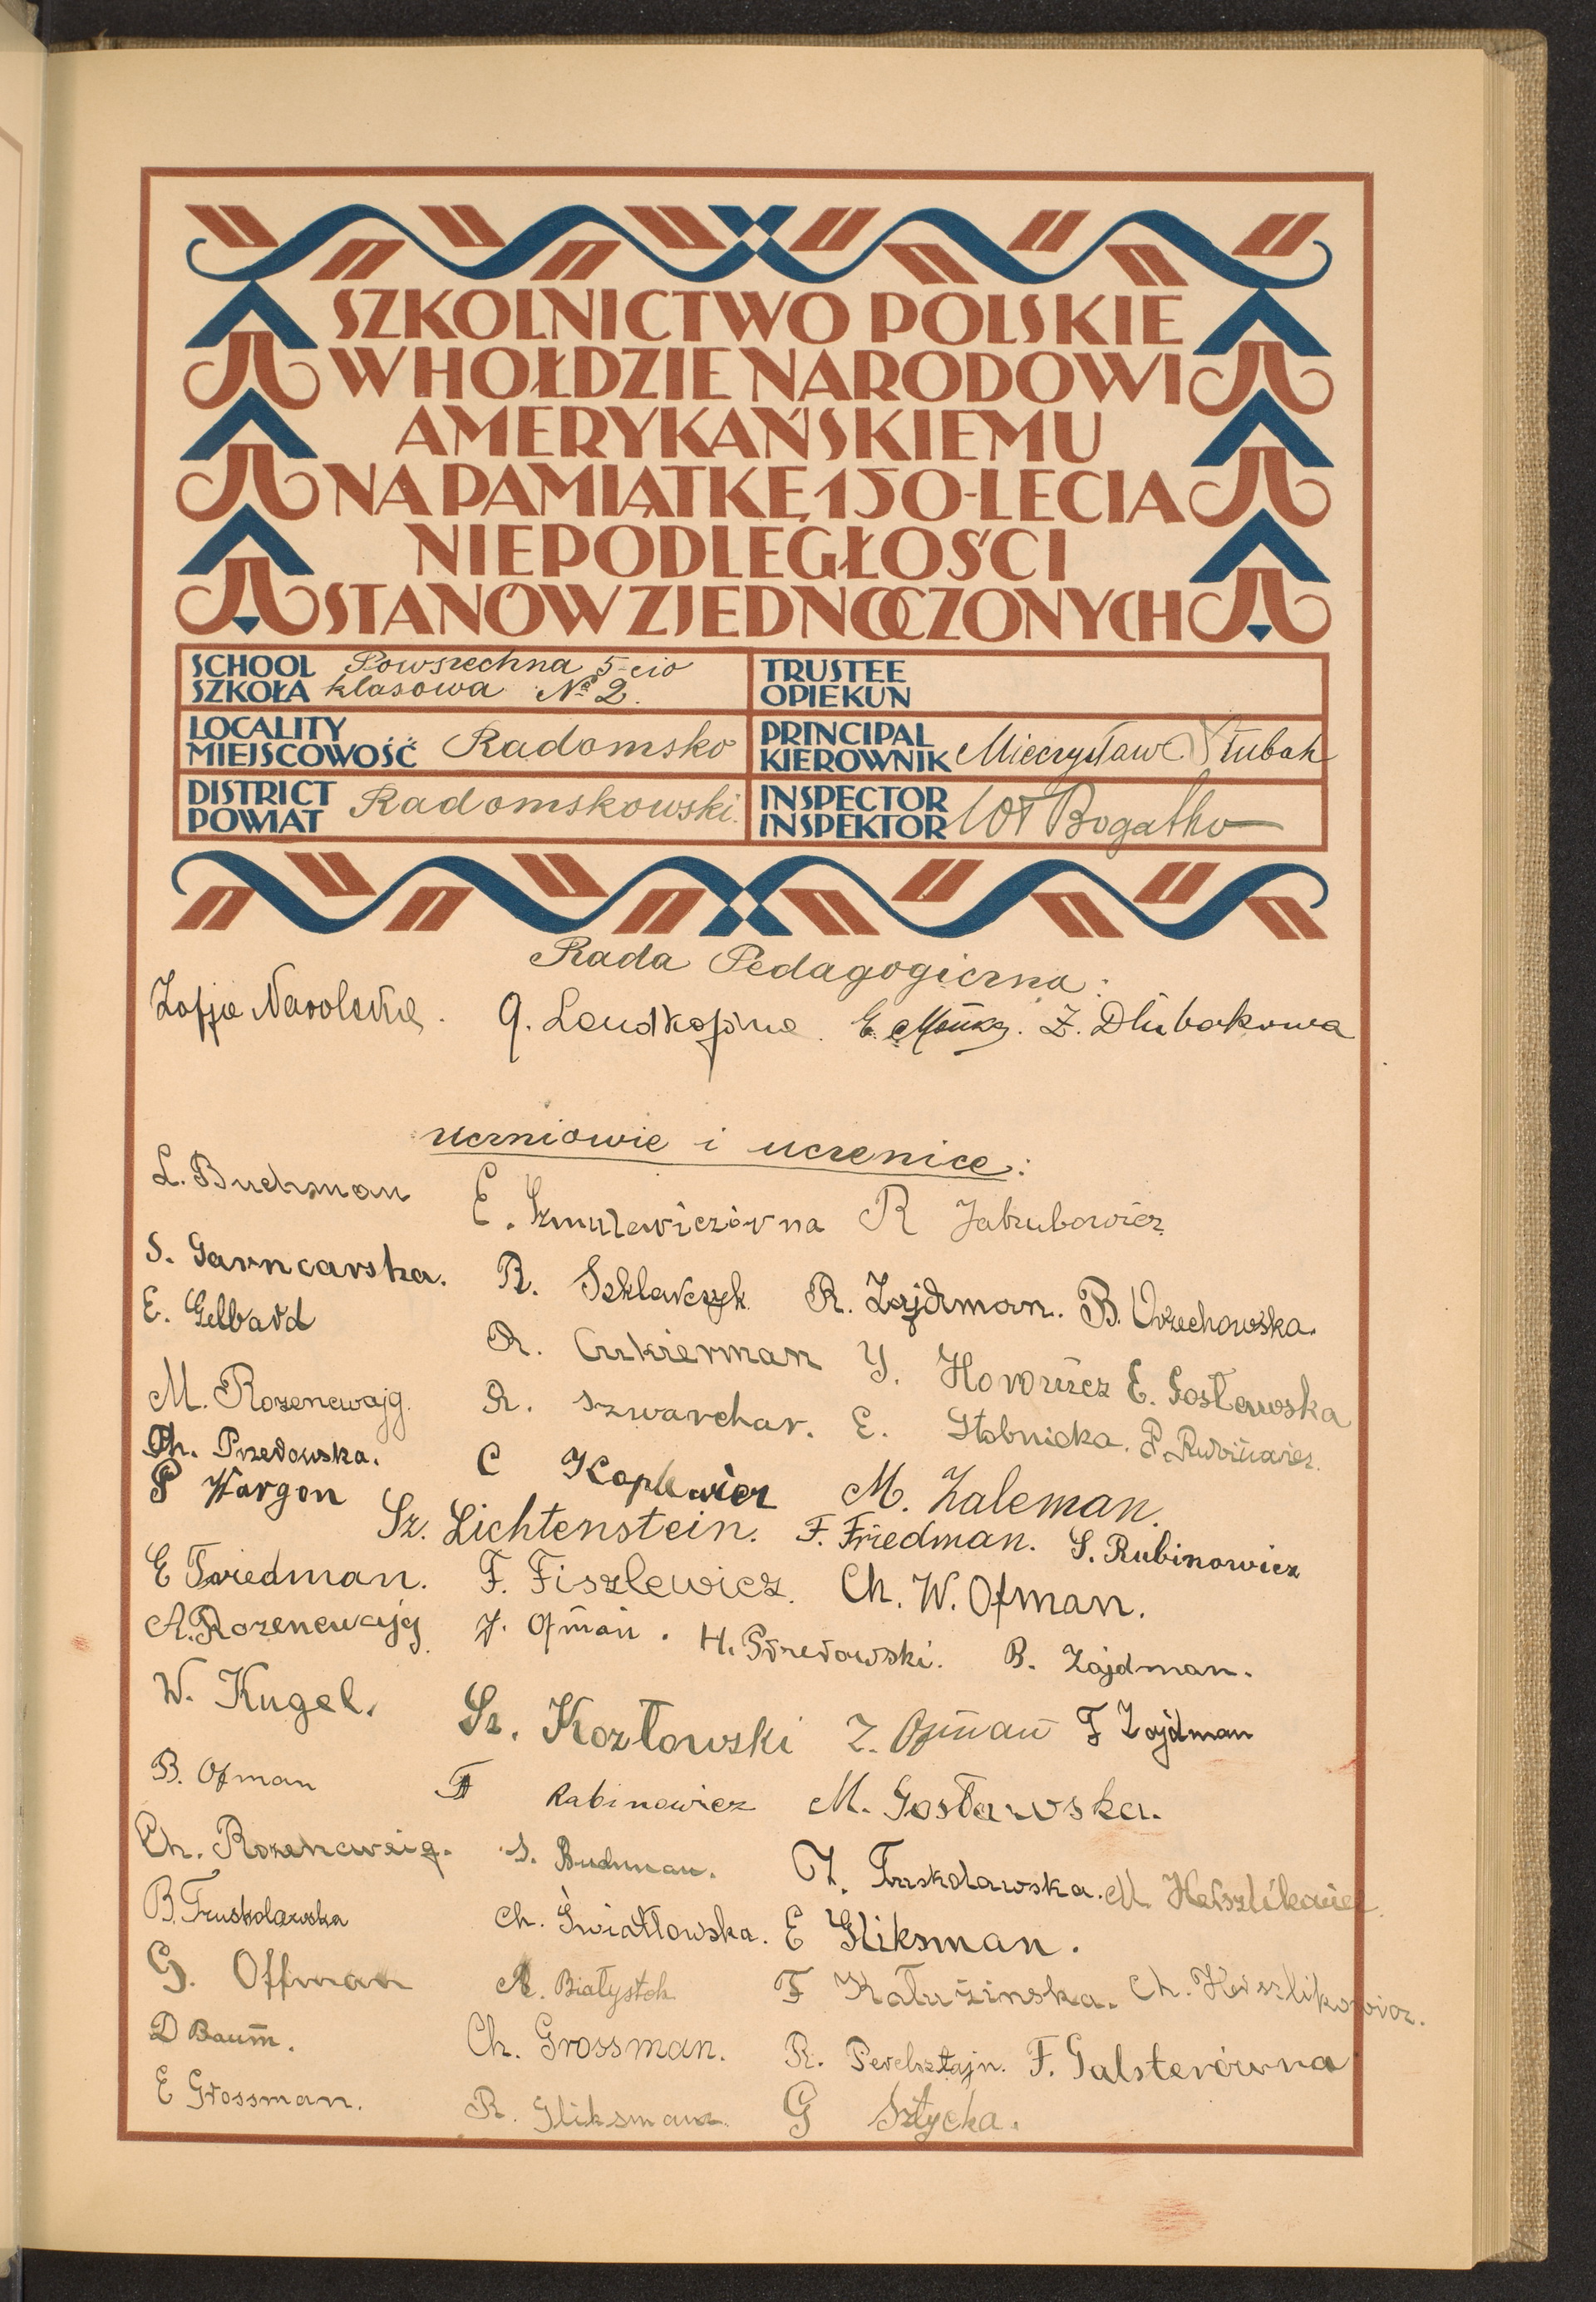 SZKOLNICTWO POLSKIE
W HOŁDZIE NARODOWI
AMERYKAŃSKIEMU
NA PAMIĄTKĘ 150-LECIA
NIEPODLEGŁOŚCI
STANÓW ZJEDNOCZONYCH
SCHOOL SZKOŁA Powszechna 5-cio klasowa № 2.
TRUSTEE OPIEKUN
LOCALITY MIEJSCOWOŚĆ Radomsko
PRINCIPAL KIEROWNIK Mieczysław Dłubak
DISTRICT POWIAT Radomskowski.
INSPECTOR INSPEKTOR Bogatko
Rada Pedagogiczna:
Zofja G. E. Z. Dłubakowa
Uczniowie i uczenice:
L. Buchman E. Szmulewiczówna R Jakubowicz
S. Garncarska. R. Szklarczyk R. Zajdman. B. Orzechowska.
E. Gelbard R. Cukierman Y. Horowicz E. Gosławska
M. Rozencwajg. R. Szwarchar. E. Stobnicka. P. Rubinowicz.
Ch. Przedowska. C Koplewicz M. Zaleman.
P Wargon Sz. Lichtenstein. F. Friedman. S. Rubinowicz
E Friedman. F. Fiszlewicz. Ch. W. Ofman.
A. Rozencwajg J. Ofman. H. Przedowski. B. Zajdman.
W. Kugel. Sz. Kozłowski Z. Ofman F Zajdman
B. Ofman Rabinowicz M. Gosławska.
Ch. Rozencweig. S. Buchman. I. Truskolawska. M. Herszlikowicz.
B. Truskolawska Ch. Światłowska. E Gliksman.
G. Offman A. Białystok F Kałuzinska. Ch. Herszlikowicz.
D Baum. Ch. Grossman. R. Perelsztajn. F. Galsterówna
E Grossman. R. Gliksman. G Sztycka.